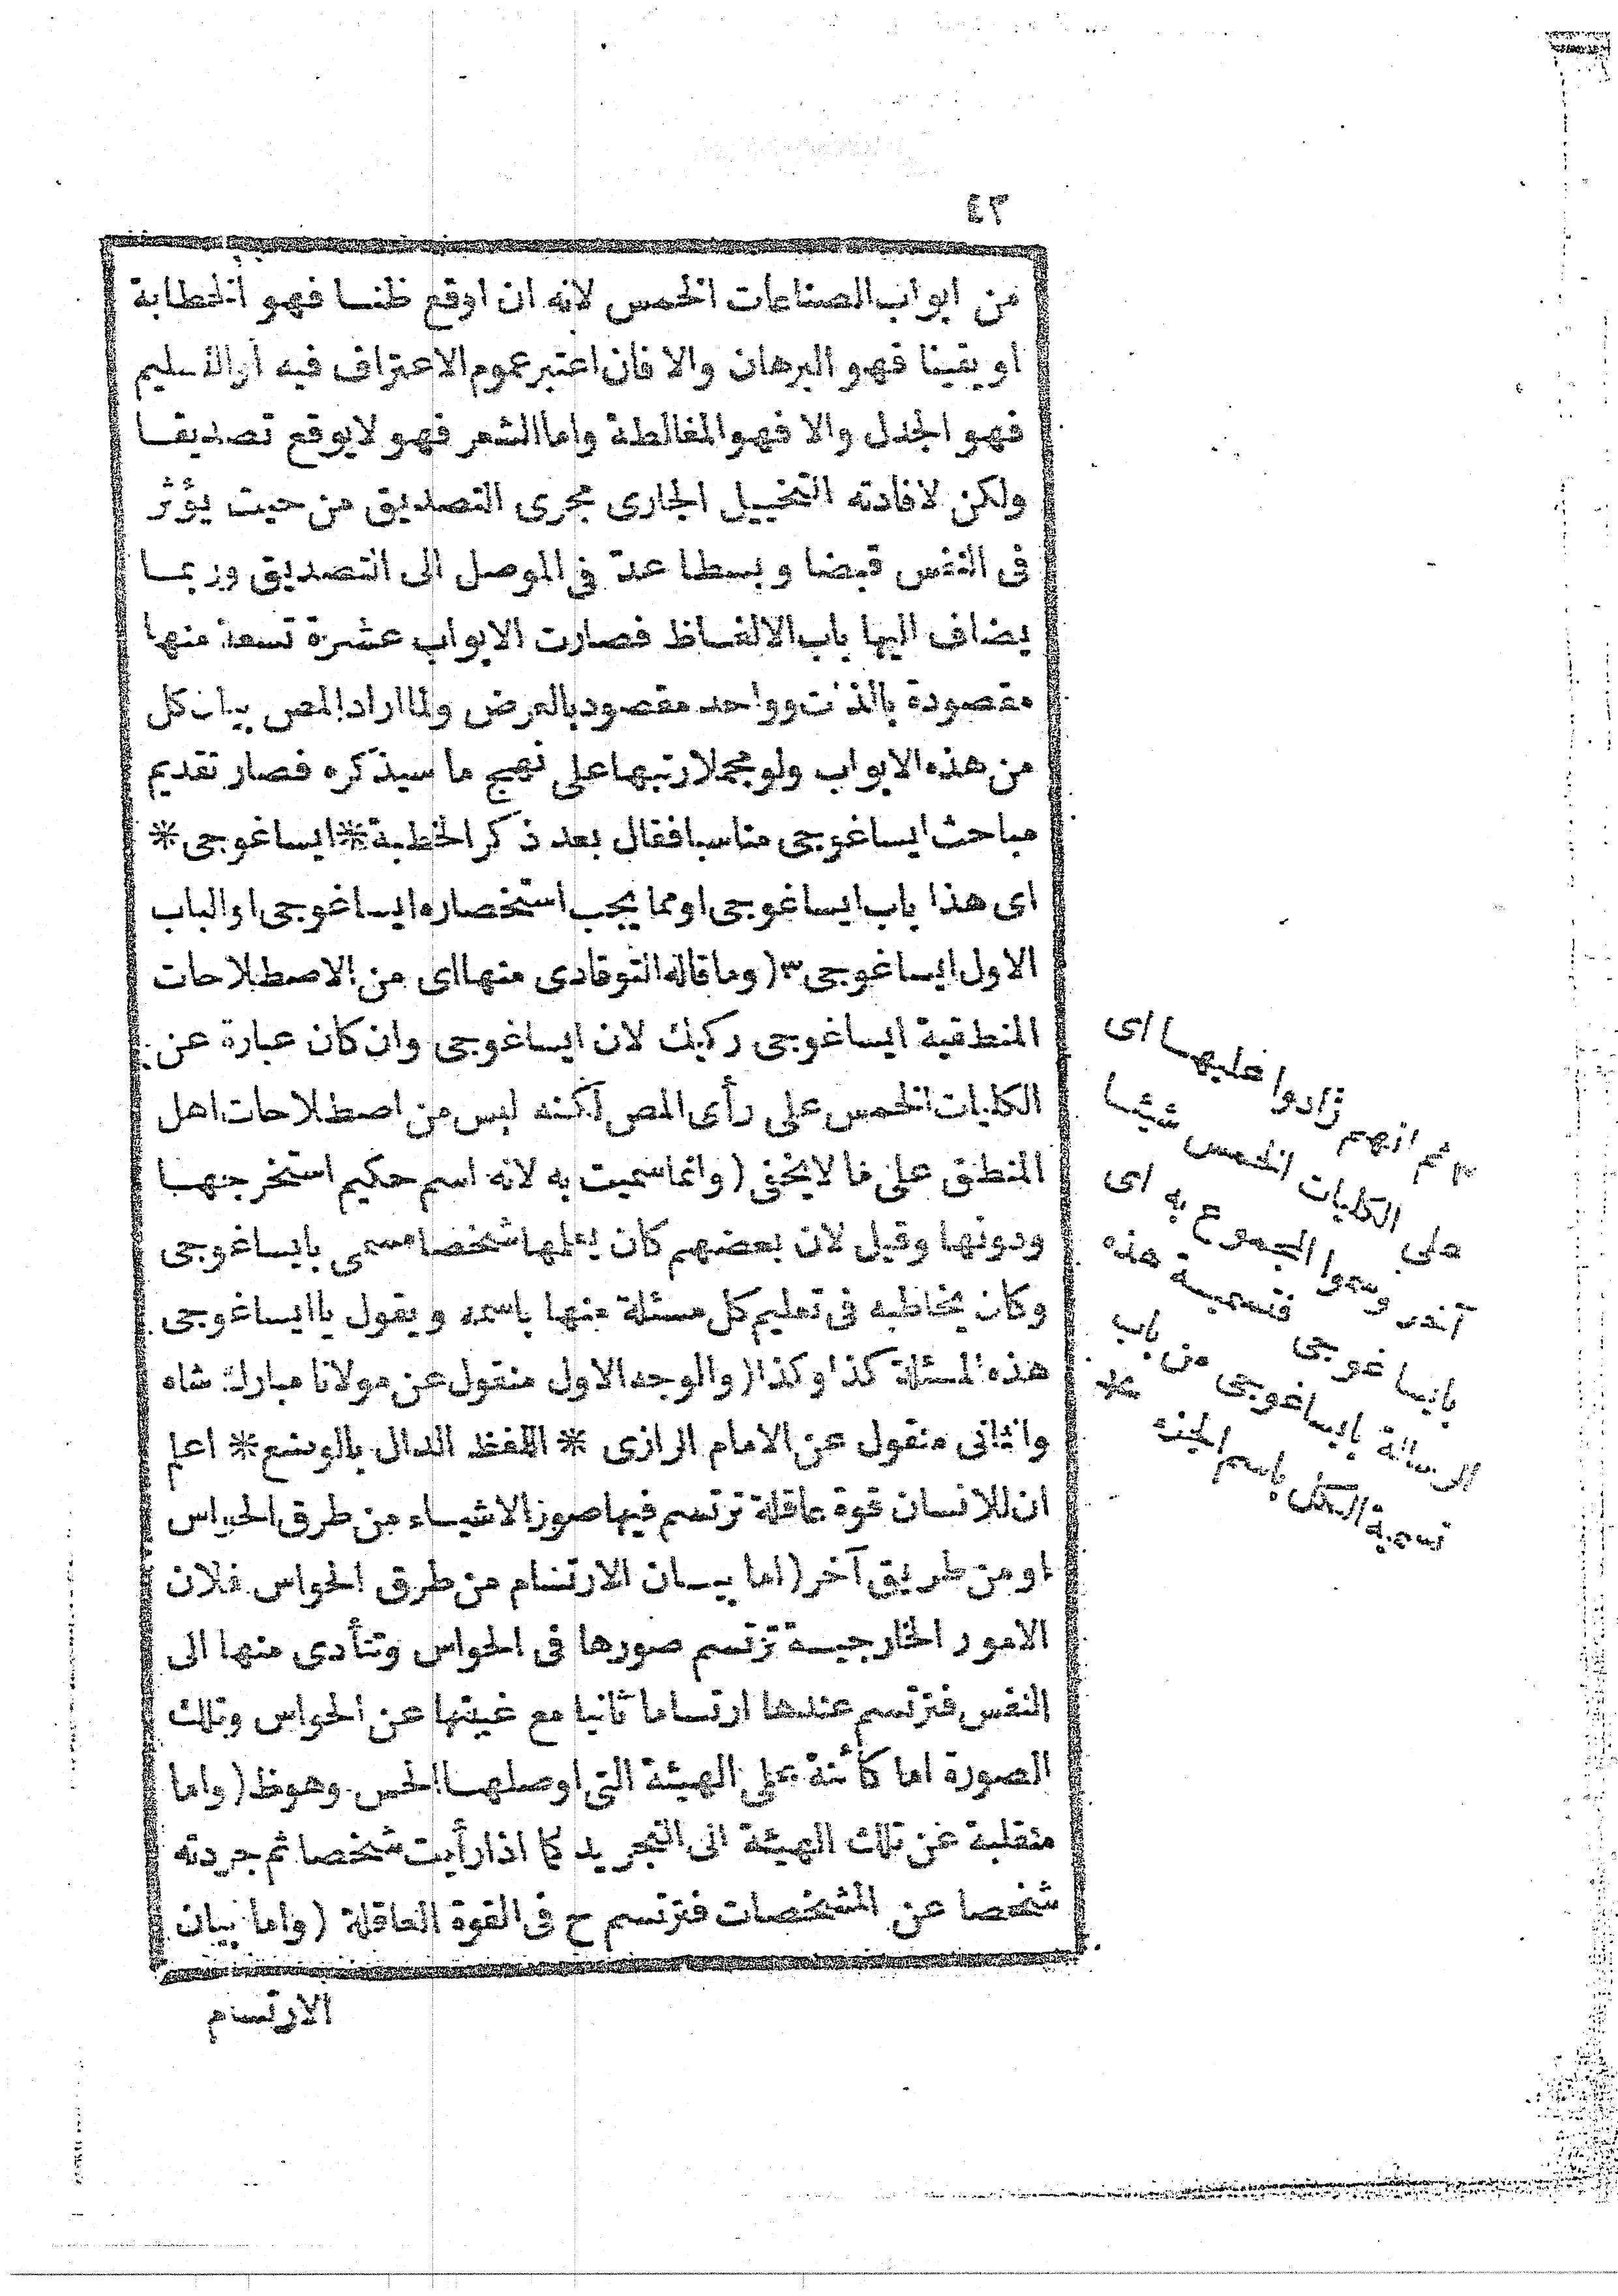 ٤٣
من ابواب الصناعات الخمس لانه ان اوقع ظنا فهو الخطابة
او يقينا فهو البرهان والا فان اعتبر عموم الاعتراف فيه او التسليم
فهو الجدل والا فهو المغالطة واما الشعر فهو لا يوقع تصديقا
ولكن لافادته التخييل الجارى مجرى التصديق من حيث يؤثر
فى النفس قبضا وبسطا عد فى الموصل الى التصديق وربما
يضاف اليها باب الالفاظ فصارت الابواب عشرة تسعة منها
مقصودة بالذات وواحد مقصود بالعرض ولما اراد المص بيان كل
من هذه الابواب ولو مجملا رتبها على نهج ما سيذكره فصار تقديم
مباحث ايساغوجى مناسبا فقال بعد ذكر الخطبة * ايساغوجى *
اى هذا باب ايساغوجى او مما يجب استحضاره ايساغوجى او الباب
الاول ايساغوجى ٣ ( وما قاله التوقادى منها اى من الاصطلاحات
المنطقية ايساغوجى ركيك لان ايساغوجى وان كان عبارة عن
الكليات الخمس على رأى المص لكنه ليس من اصطلاحات اهل
المنطق على ما لا يخفى ( وانما سميت به لانه اسم حكيم استخرجها
ودونها وقيل لان بعضهم كان يعلمها شخصا مسمى بايساغوجى
وكان يخاطبه فى تعليم كل مسئلة منها باسمه ويقول يا ايساغوجى
هذه المسئلة كذا وكذا ( والوجه الاول منقول عن مولانا مبارك شاه
والثانى منقول عن الامام الرازى * اللفظ الدال بالوضع * اعلم
ان للانسان قوة عاقلة ترتسم فيها صور الاشياء من طرق الحواس
او من طريق آخر ( اما بيان الارتسام من طرق الحواس فلان
الامور الخارجية ترتسم صورها فى الحواس وتتأدى منها الى
النفس فترتسم عندها ارتساما ثانيا مع غيبتها عن الحواس وتلك
الصورة اما كائنة على الهيئة التى اوصلها الحس وهو ظ ( واما
منقلبة عن تلك الهيئة الى التجريد كما اذا رأيت شخصا ثم جردته
شخصا عن المشخصات فترتسم ح فى القوة العاقلة ( واما بيان
الارتسام
٣ ثم انهم زادوا عليها اى
على الكليات الخمس شيئا
آخر وسموا المجموع به اى
بايساغوجى فتسمية هذه
الرسالة بايساغوجى من باب
تسمية الكل باسم الجزء *